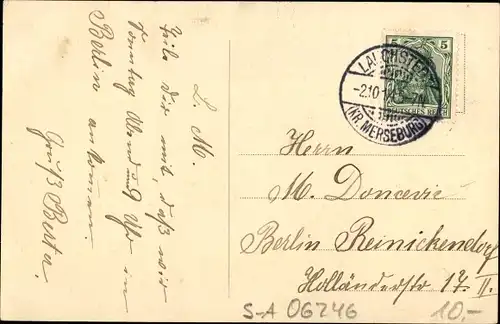 L. M.
Teile Dir mit, daß wir
Sonntag Abend 9 Uhr in
Berlin ankommen.
Gruß Berta.
LAUCHSTEDT
-2.10.
(KR. MERSEBURG)
5
DEUTSCHES REICH
Herrn
M. Doncevic
Berlin Reinickendorf
Holländerstr 17. II.
S-A 06246
10.-